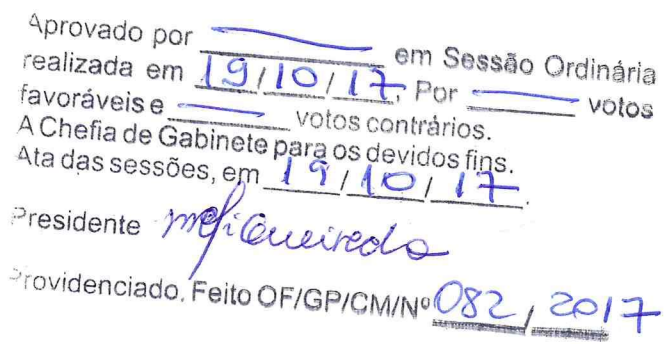 Aprovado por ______ em Sessão Ordinária
realizada em 19/10/17. Por ______ votos
favoráveis e ______ votos contrários.
A Chefia de Gabinete para os devidos fins.
Ata das sessões, em 19/10/17.
Presidente mfigueiredo
Providenciado. Feito OF/GP/CM/Nº 082, 2017